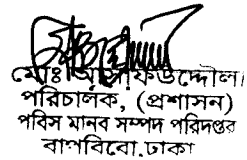 মোঃ আশরাফউদ্দৌলা
পরিচালক, (প্রশাসন)
পবিস মানব সম্পদ পরিদপ্তর
বাপবিবো, ঢাকা